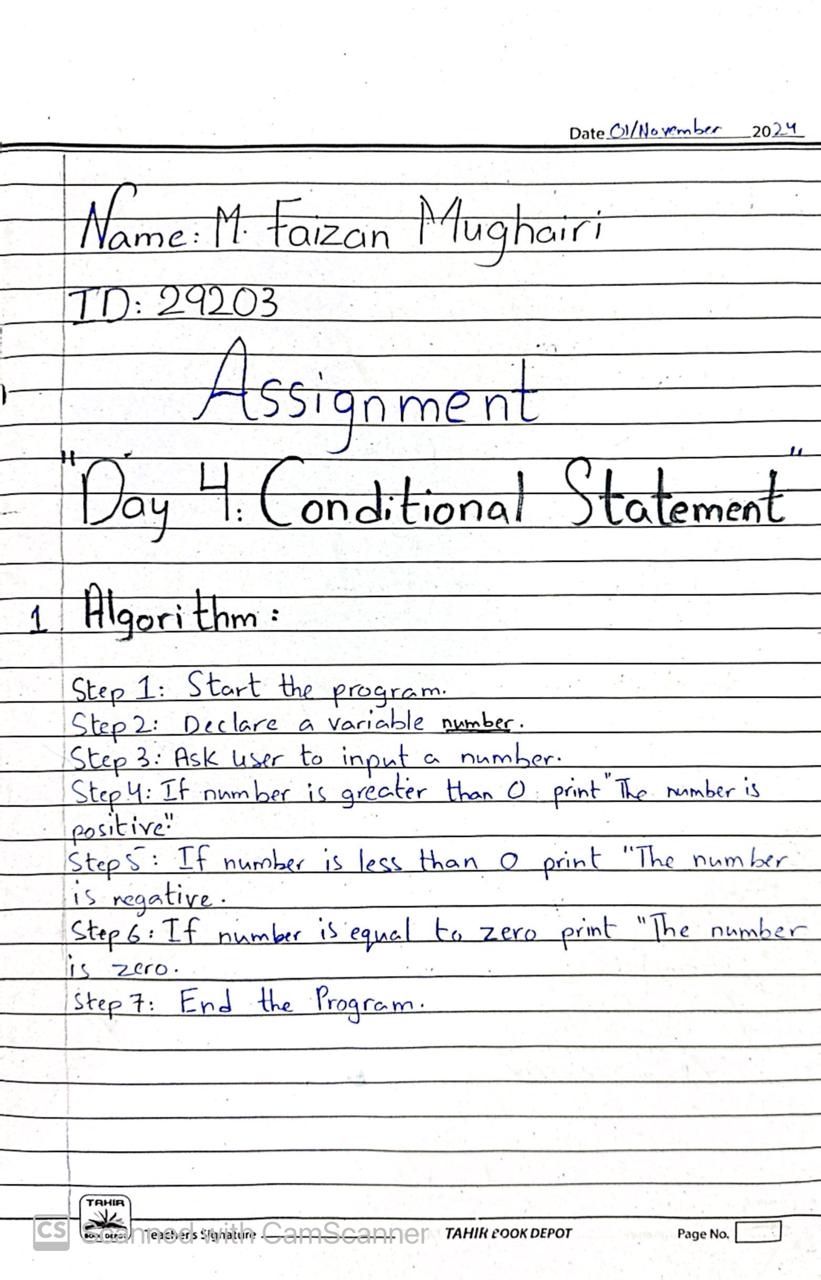 Date 01/November 2024
Name: M. Faizan Mughairi
ID: 29203
Assignment
"Day 4: Conditional Statement"
1 Algorithm:
Step 1: Start the program.
Step 2: Declare a variable number.
Step 3: Ask user to input a number.
Step 4: If number is greater than 0 print "The number is
positive"
Step 5: If number is less than 0 print "The number
is negative.
Step 6: If number is equal to zero print "The number
is zero.
Step 7: End the Program.
TAHIR
BOOK DEPOT
CS Scanned with CamScanner
Teacher's Signature
TAHIR BOOK DEPOT
Page No.